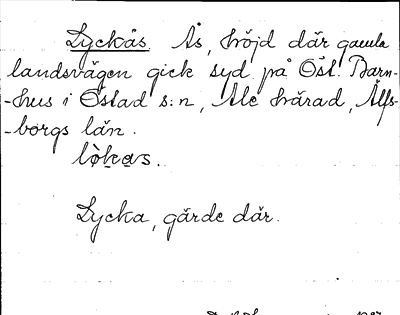 Lyckås Ås, höjd där gamla
landsvägen gick syd på Öst. Barn-
-hus i Östad s:n, Ale härad, Älfs-
-borgs län.
lo̱kas.
Lycka, gärde där.